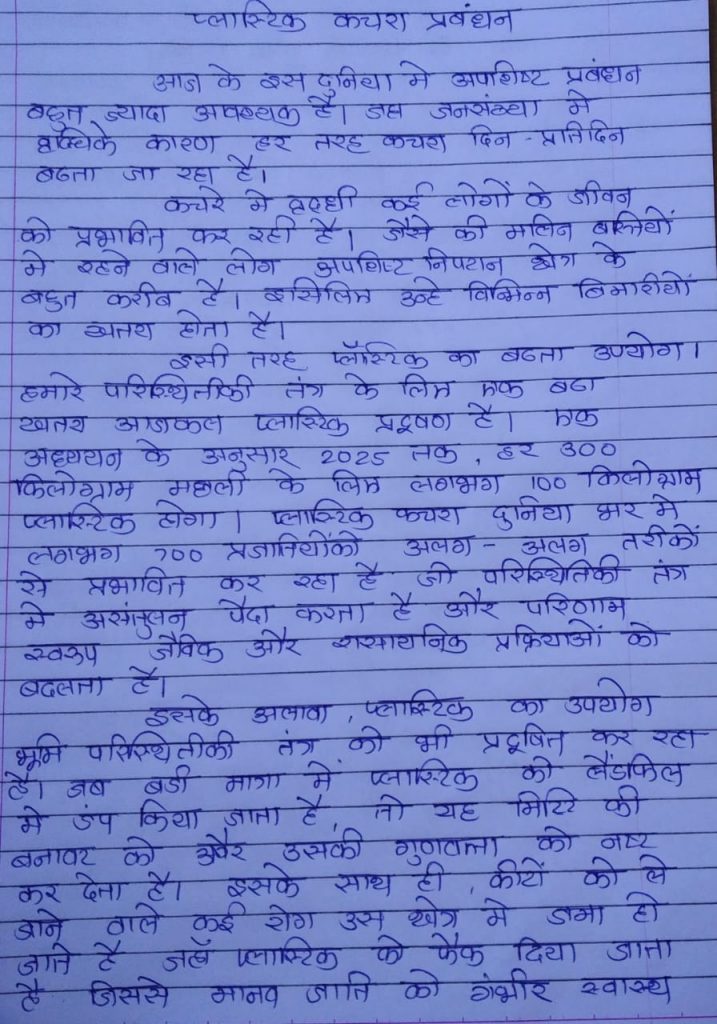 प्लास्टिक कचरा प्रबंधन
आज के इस दुनिया मे अपशिष्ट प्रबंधन
बहुत ज्यादा आवश्यक है। जहा जनसंख्या मे
के कारण हर तरह कचरा दिन - प्रातिदिन
बढता जा रहा है।
कचरे मे वृध्धी कई लोगों के जीवन
को प्रभावित कर रही है। जैसे की मलिन बस्तियों
मे रहने वाले लोग अपशिष्ट निपटान क्षेत्र के
बहुत करीब है। इसिलिए उन्हे विभिन्न बिमारीयों
का खतरा होता है।
इसी तरह प्लॅास्टिक का बढता उपयोग।
हमारे परिस्थितीकी तंत्र के लिए एक बढा
खतरा आजकल प्लास्टिक प्रदूषण है। एक
अध्ययन के अनुसार 2025 तक, हर 300
किलोग्राम मछली के लिए लगभग 100 किलोग्राम
प्लास्टिक होगा। प्लास्टिक कचरा दुनिया भर मे
लगभग 700 प्रजातियोंको अलग - अलग तरीकों
से प्रभावित कर रहा है जो परिस्थितिकी तंत्र
मे असंतुलन पैदा करता है और परिणाम
स्वरुप जैविक और रासायनिक प्रक्रियाओं को
बदलता है।
इसके अलावा, प्लास्टिक का उपयोग
भूमि परिस्थितीकी तंत्र को भी प्रदूषित कर रहा
है। जब बडी मात्रा में प्लास्टिक को लैंडफिल
मे डंप किया जाता है, तो यह मिटि की
बनावट को और उसकी गुणवत्ता को नष्ट
कर देता है। इसके साथ ही, कीटों को ले
जाने वाले कई रोग उस क्षेत्र मे जमा हो
जाते है जहाँ प्लास्टिक को फेंक दिया जाता
है जिससे मानव जाति को गंभीर स्वास्थ